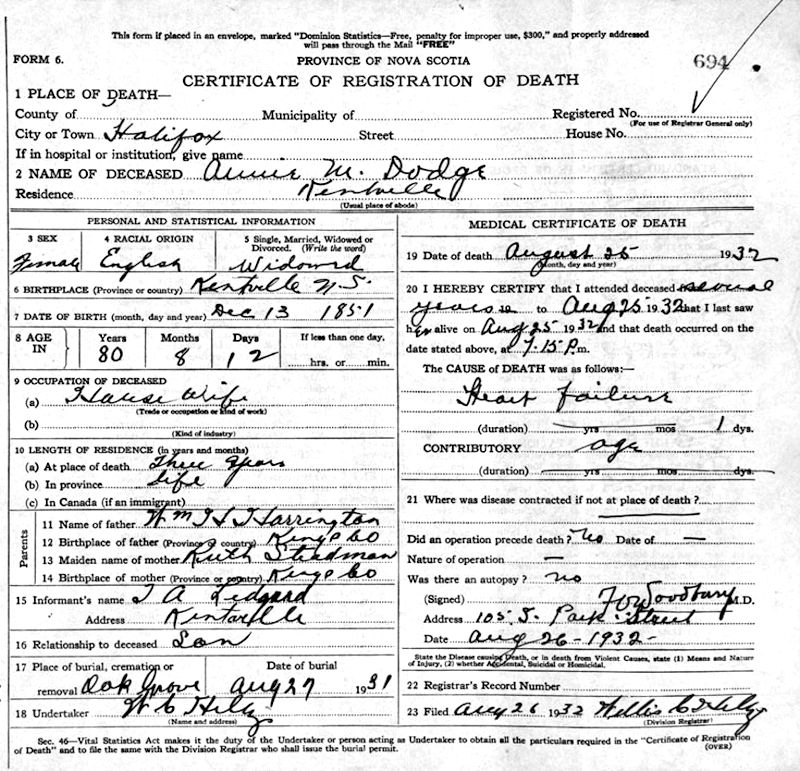 This form if placed in an envelope, marked "Dominion Statistics—Free, penalty for improper use, $300," and properly addressed
will pass through the Mail "FREE"
FORM 6.
PROVINCE OF NOVA SCOTIA
694
CERTIFICATE OF REGISTRATION OF DEATH
1 PLACE OF DEATH—
County of Municipality of Registered No.
(For use of Registrar General only)
City or Town Halifax Street House No.
If in hospital or institution, give name
2 NAME OF DECEASED Annie M. Dodge
Residence Kentville
(Usual place of abode)
PERSONAL AND STATISTICAL INFORMATION
3 SEX 4 RACIAL ORIGIN 5 Single, Married, Widowed or Divorced. (Write the word)
Female English Widowed
6 BIRTHPLACE (Province or country) Kentville N.S.
7 DATE OF BIRTH (month, day and year) Dec 13 1851
8 AGE IN Years Months Days If less than one day.
80 8 12 hrs. or min.
9 OCCUPATION OF DECEASED
(a) House Wife
(Trade or occupation or kind of work)
(b)
(Kind of industry)
10 LENGTH OF RESIDENCE (in years and months)
(a) At place of death Three Years
(b) In province Life
(c) In Canada (if an immigrant)
Parents
11 Name of father Wm H Harrington
12 Birthplace of father (Province or country) Kings Co
13 Maiden name of mother Ruth Steadman
14 Birthplace of mother (Province or country) Kings Co
15 Informant's name
Address
16 Relationship to deceased Son
17 Place of burial, cremation or Date of burial
removal Oak Grove Aug 27 1931
18 Undertaker
(Name and address)
MEDICAL CERTIFICATE OF DEATH
19 Date of death August 25 1932
(Month, day and year)
20 I HEREBY CERTIFY that I attended deceased several
years 19 to Aug 25 1932 that I last saw
her alive on Aug 25 1932 and that death occurred on
date stated above, at 7.15 P.m.
The CAUSE of DEATH was as follows:—
Heart failure
(duration) yrs mos 1 dys.
CONTRIBUTORY age
(duration) yrs mos dys.
21 Where was disease contracted if not at place of death?
Did an operation precede death? No Date of —
Nature of operation —
Was there an autopsy? no
(Signed) Woodbury M.D.
Address 105 S. Park Street
Date Aug 26-1932-
State the Disease causing Death, or in death from Violent Causes, state (1) Means and Nature
of Injury, (2) whether Accidental, Suicidal or Homicidal.
22 Registrar's Record Number
23 Filed Aug 26 1932
(Division Registrar)
Sec. 46—Vital Statistics Act makes it the duty of the Undertaker or person acting as Undertaker to obtain all the particulars required in the "Certificate of Registration
of Death" and to file the same with the Division Registrar who shall issue the burial permit.
(OVER)